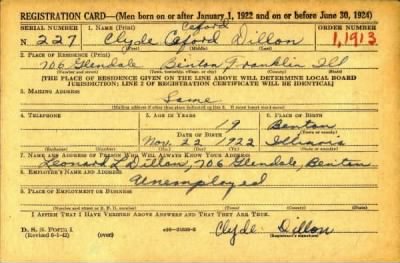 REGISTRATION CARD—(Men born on or after January 1, 1922 and on or before June 30, 1924)
SERIAL NUMBER
1. NAME (Print)
Ceford
ORDER NUMBER
N. 227
Clyde Ceford Dillon
1,1913
(First) (Middle) (Last)
2. PLACE OF RESIDENCE (Print)
706 Glendale Benton Franklin Ill
(Number and street) (Town, township, village, or city) (County) (State)
[THE PLACE OF RESIDENCE GIVEN ON THE LINE ABOVE WILL DETERMINE LOCAL BOARD
JURISDICTION; LINE 2 OF REGISTRATION CERTIFICATE WILL BE IDENTICAL]
3. MAILING ADDRESS
Same
(Mailing address if other than place indicated on line 2. If same insert word same)
4. TELEPHONE
5. AGE IN YEARS
6. PLACE OF BIRTH
19
Benton
DATE OF BIRTH
Nov. 22 1922
Illinois
7. NAME AND ADDRESS OF PERSON WHO WILL ALWAYS KNOW YOUR ADDRESS
Leonard L Dillon, 706 Glendale, Benton
8. EMPLOYER'S NAME AND ADDRESS
Unemployed
9. PLACE OF EMPLOYMENT OR BUSINESS
I AFFIRM THAT I HAVE VERIFIED ABOVE ANSWERS AND THAT THEY ARE TRUE.
D. S. S. FORM 1
(Revised 6-1-42) (over)
Clyde Dillon
(Registrant's signature)